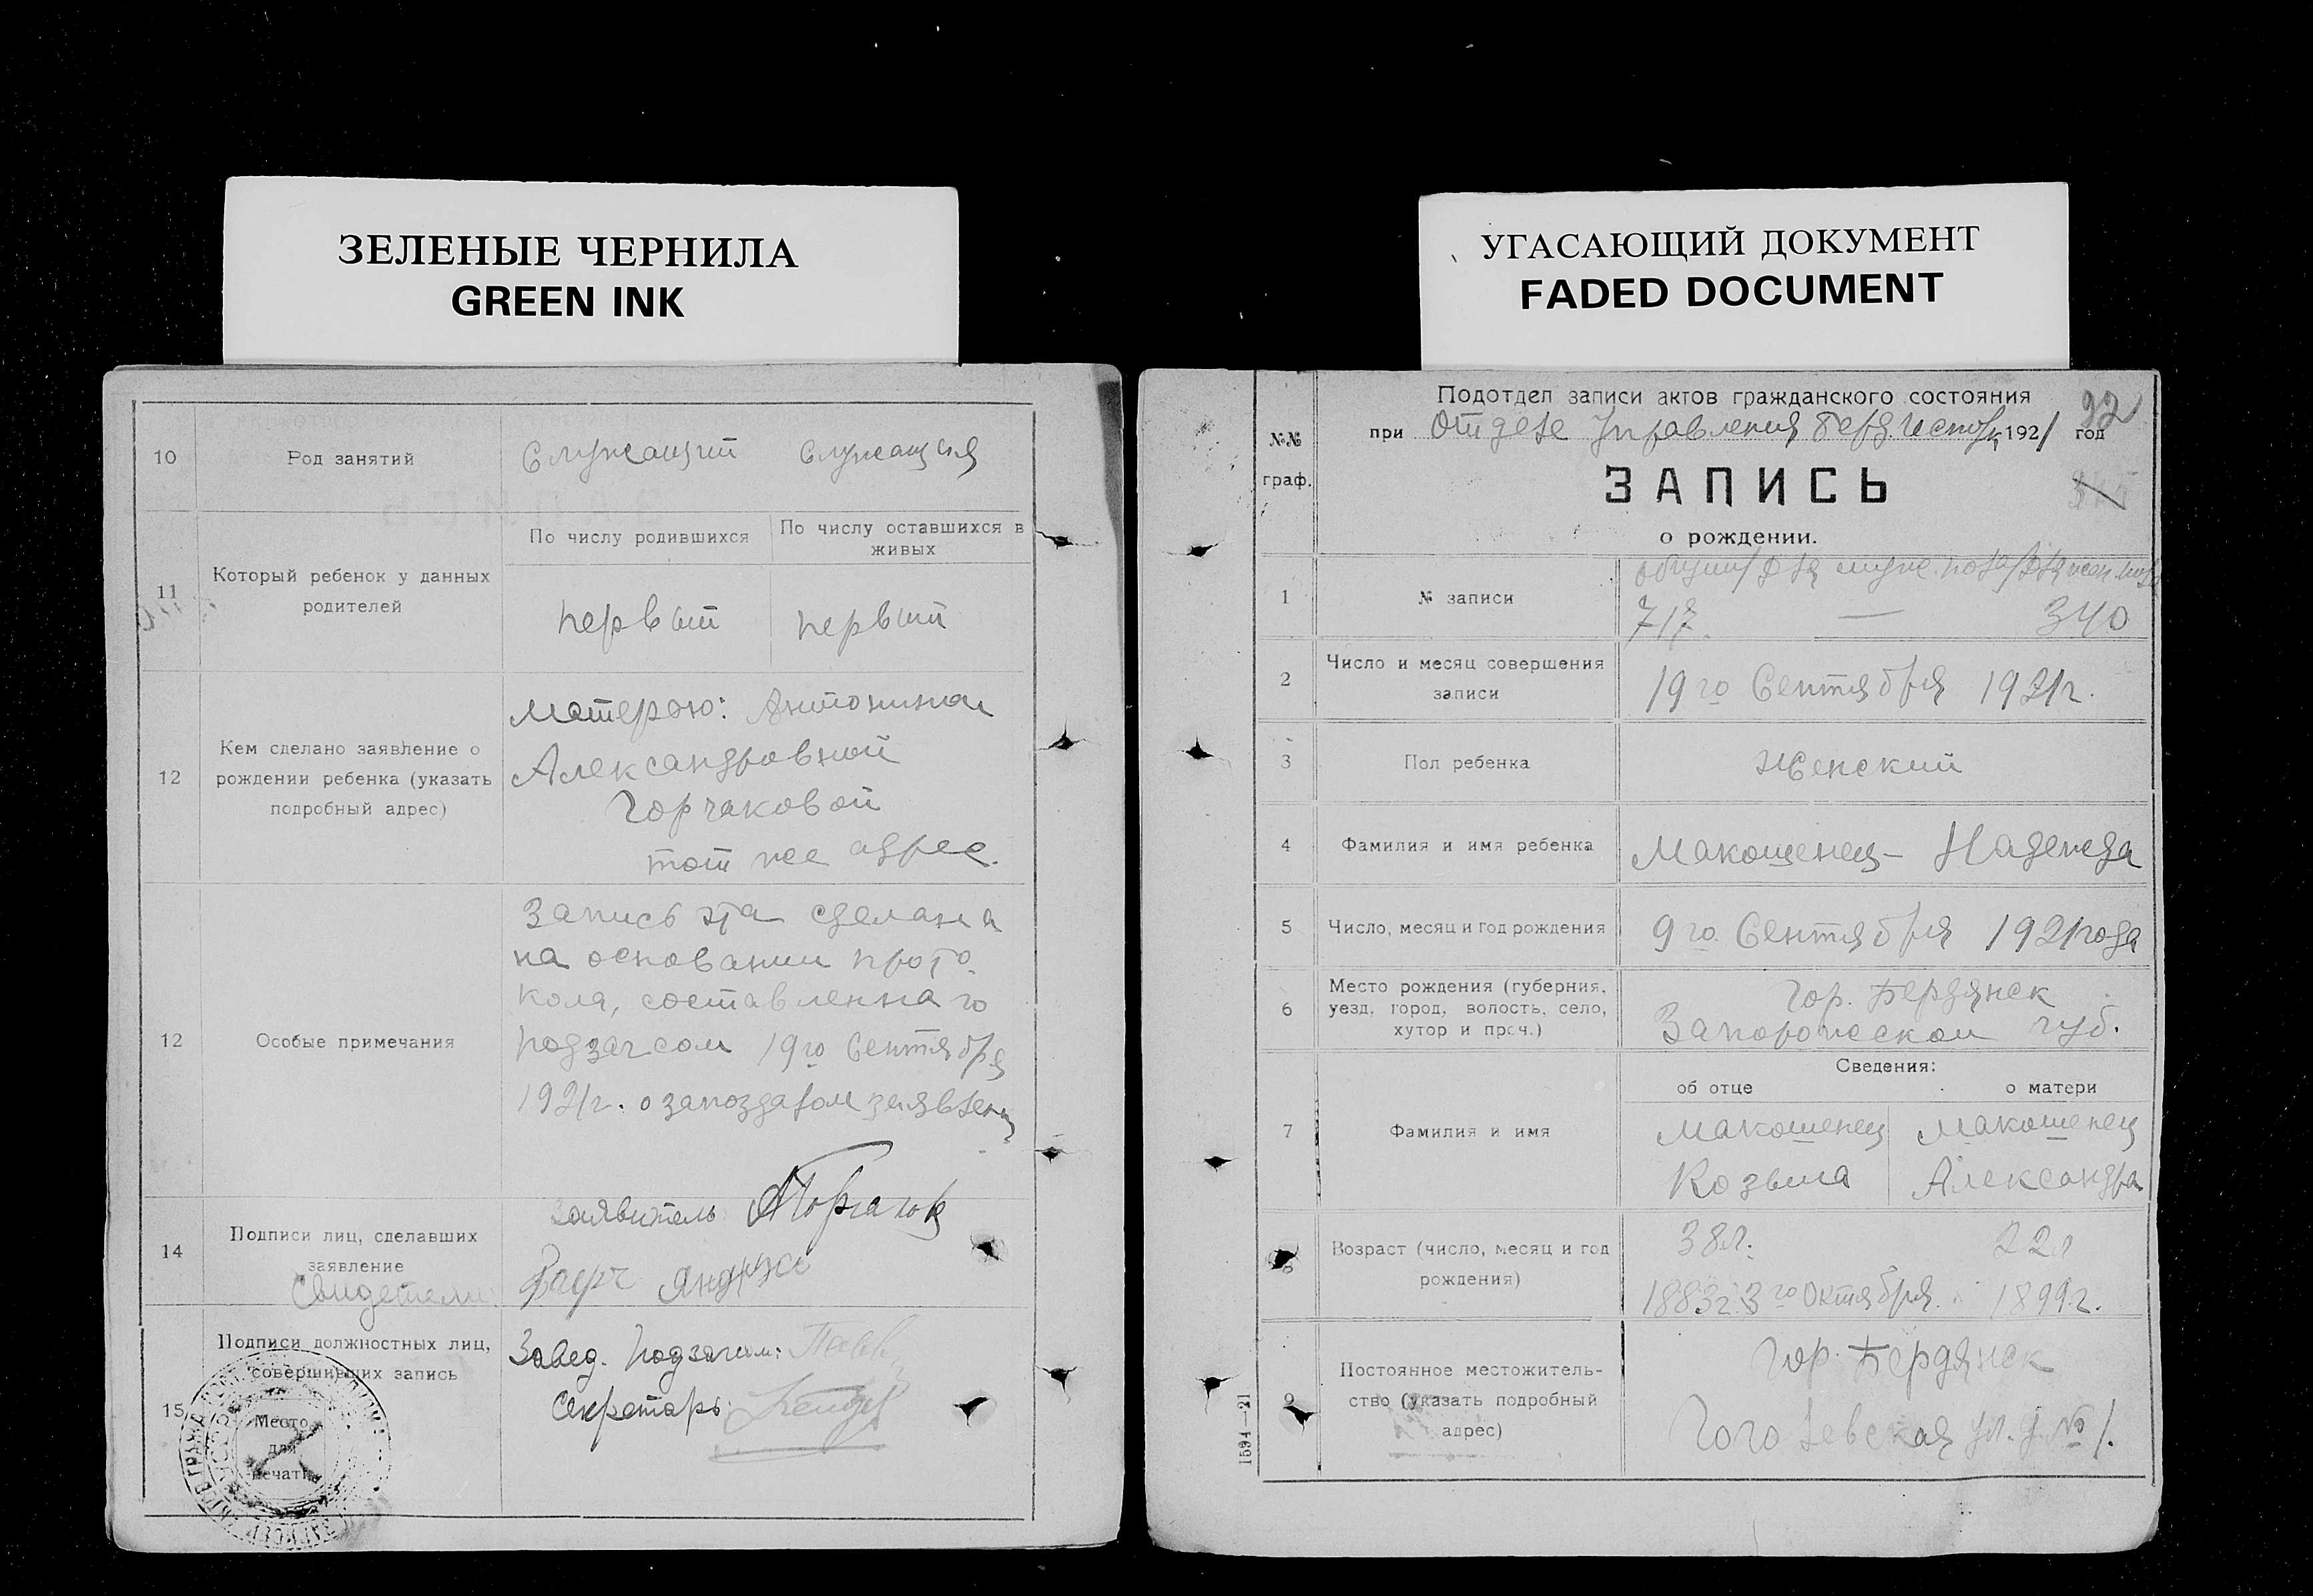 ЗЕЛЕНЫЕ ЧЕРНИЛА
GREEN INK
10
Род занятий
Служащий
Служащия
11
Который ребенок у данных
родителей
По числу родившихся
По числу оставшихся в
живых
первый
первый
12
Кем сделано заявление о
рождении ребенка (указать
подробный адрес)
Матерью: Антонина
Александровной
Горчаковой
тот же адрес.
12
Особые примечания
Запись эта сделана
на основании прото
кола, составленнаго
подзагсом 19го Сентября
1921г. о запоздалом заявлении
14
Подписи лиц, сделавших
заявление
Свидетели
Заявитель
15
Подписи должностных лиц,
совершивших запись
Место
для
печати
Завед. Подзагсом:
Секретарь:
УГАСАЮЩИЙ ДОКУМЕНТ
FADED DOCUMENT
№№
граф.
Подотдел записи актов гражданского состояния
92
при Отделе Управления 1921 год
ЗАПИСЬ
о рождении.
1
№ записи
717. — 340
2
Число и месяц совершения
записи
19го Сентября 1921г.
3
Пол ребенка
Женский
4
Фамилия и имя ребенка
Макошенец - Надежда
5
Число, месяц и год рождения
9го Сентября 1921 года
6
Место рождения (губерния,
уезд, город, волость, село,
хутор и проч.)
Гор. Бердянск
Запорожской губ.
Сведения:
об отце
о матери
7
Фамилия и имя
Макошенец
Козьма
Макошенец
Александра
8
Возраст (число, месяц и год
рождения)
38л.
22л
1883г. 3го Октября.
1899г.
9
Постоянное местожитель-
ство (указать подробный
адрес)
Гор. Бердянск
Гоголевская ул. д. № 1.
1594—21